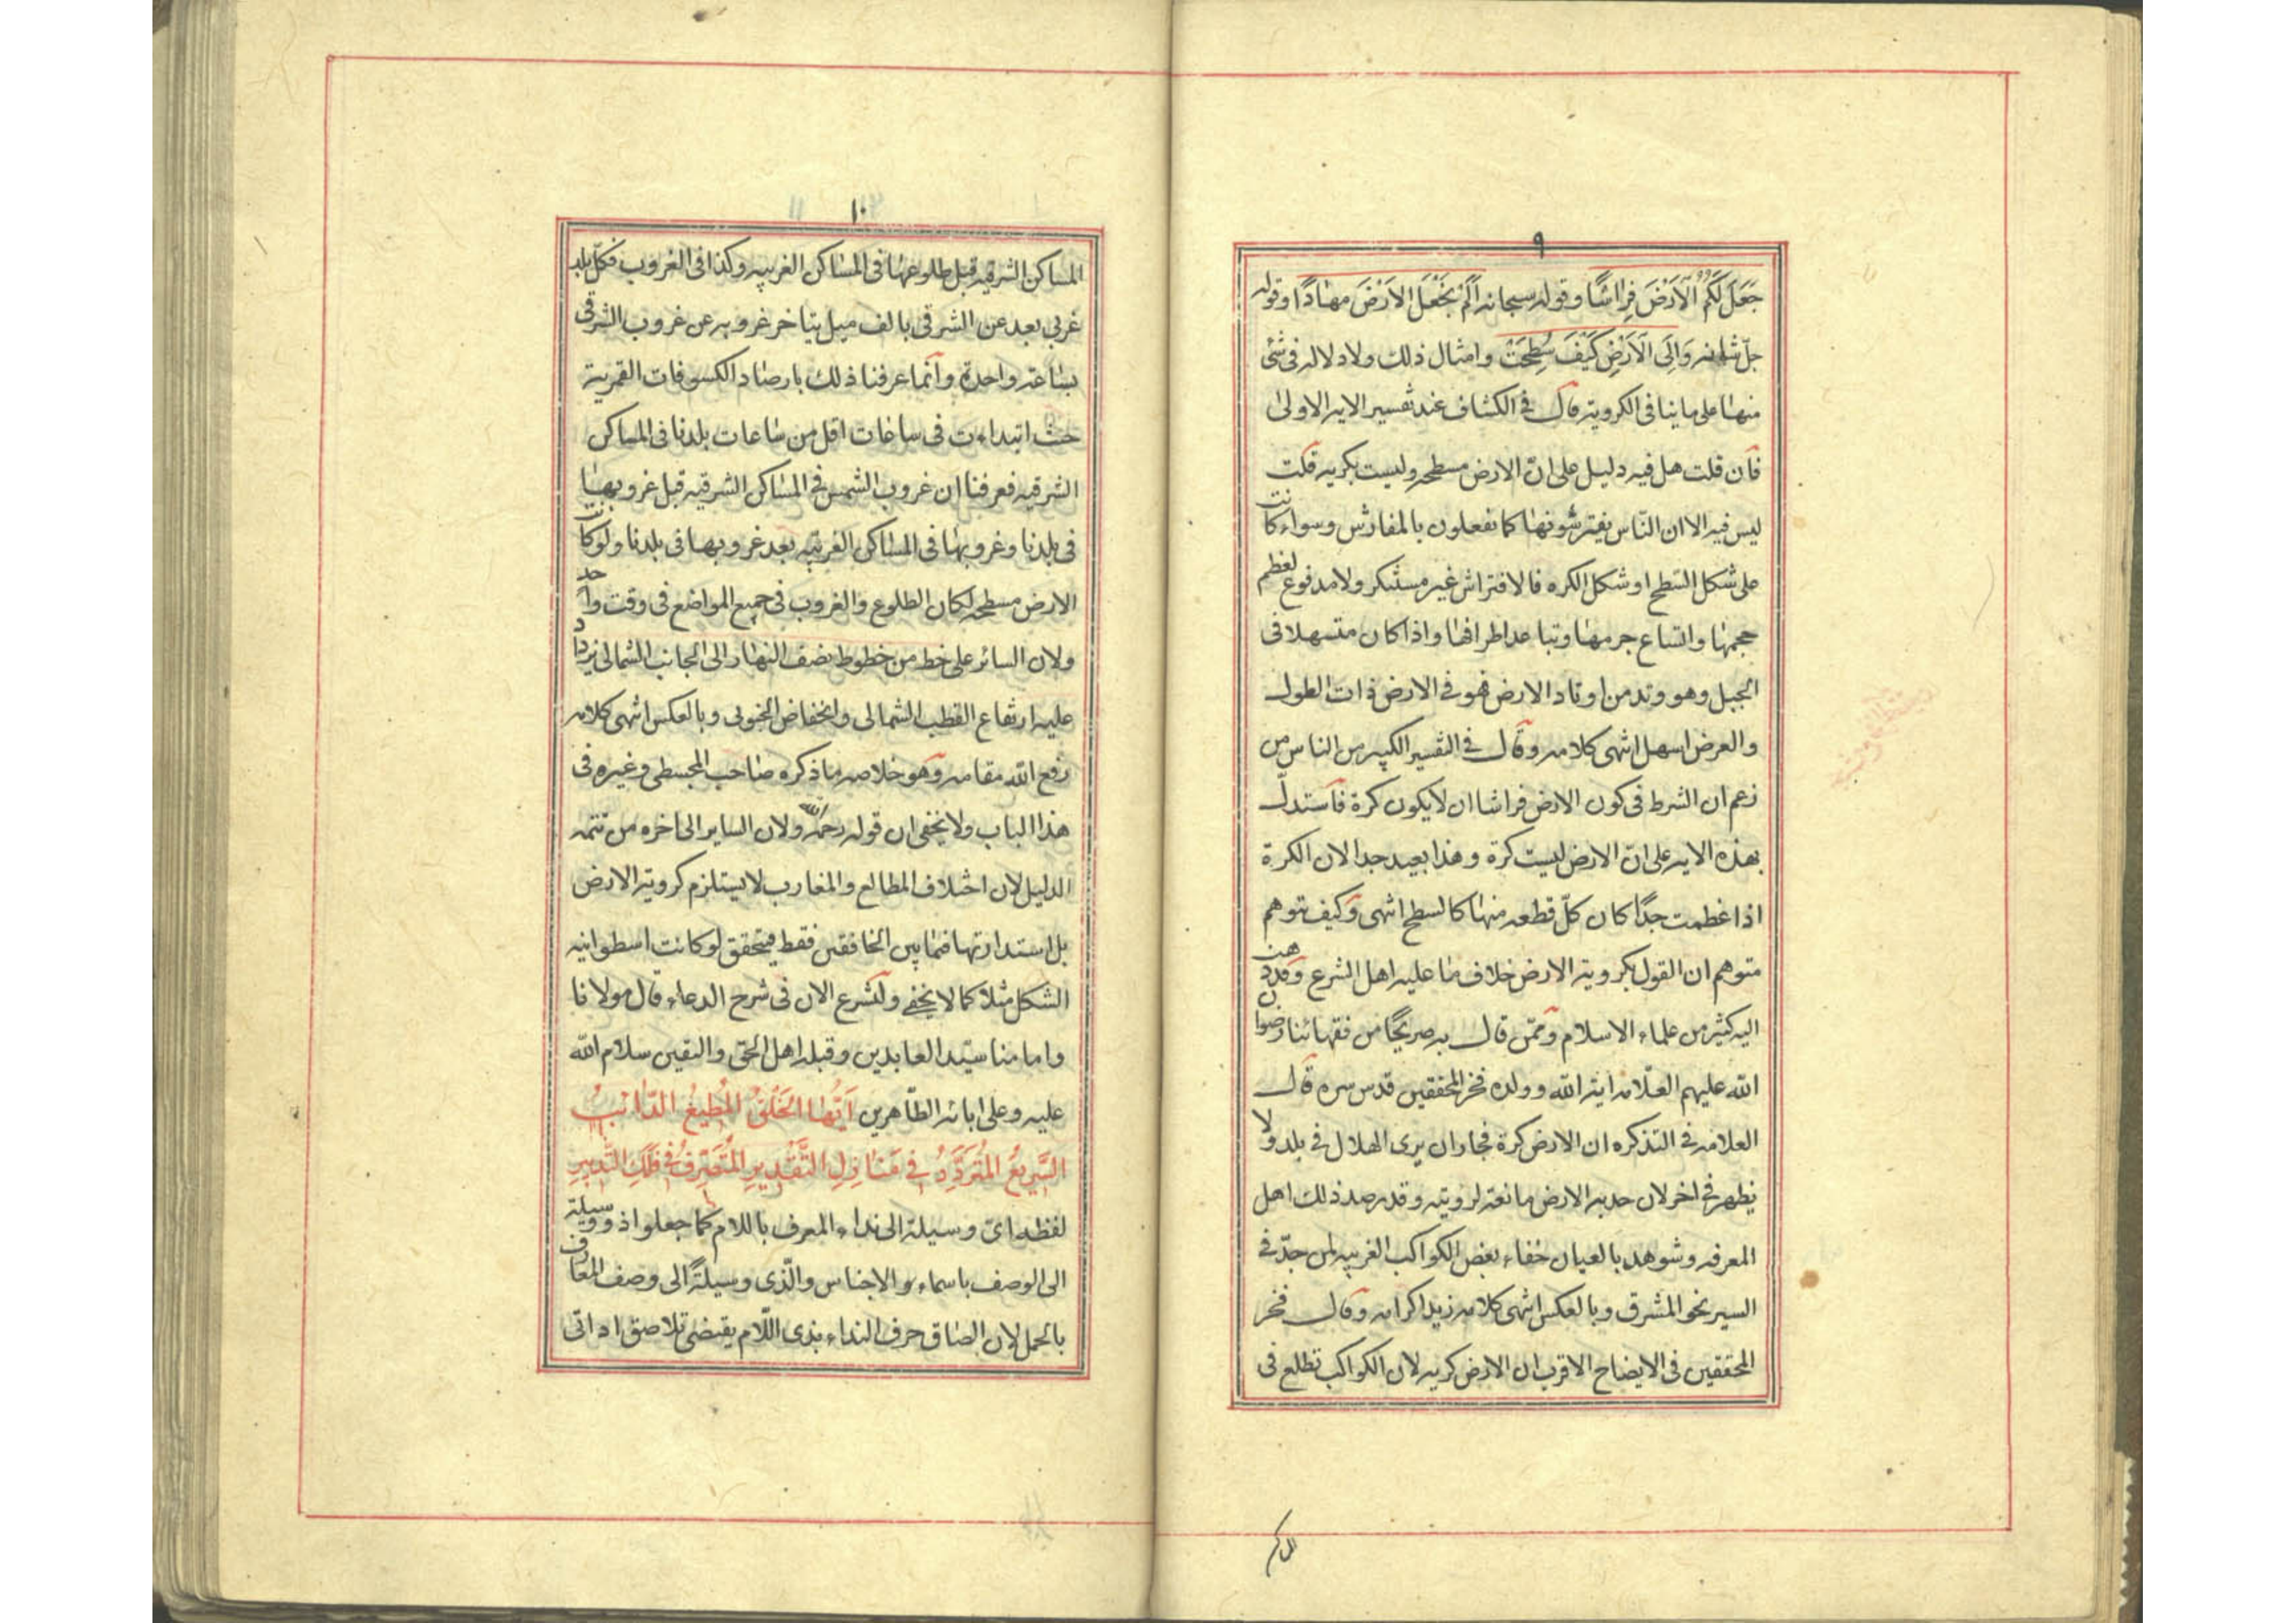 ٩
جَعَلَ لَكُمُ الْاَرْضَ فِرَاشًا وقوله سبحانه اَلَمْ نَجْعَلِ الاَرْضَ مِهَادًا وقوله
جلّ شانه وَاِلَى الْاَرْضِ كَيْفَ سُطِحَتْ وامثال ذلك ولا دلاله فى شئ
منها على ما ينافى الكرويته قال فى الكشاف عند تفسير الايه الاولى
فان قلت هل فيه دليل على انّ الارض مسطحه وليست بكريه قلت
ليس فيه الا ان النّاس يفترشونها كما تفعلون بالمفارش وسواء كانت
على شكل السّطح او شكل الكره فالافتراش غير مستنكر ولا مدفوع لعظم
حجمها واتساع جرمها وتباعد اطرافها واذا كان متسهلا فى
الجبل وهو وتد من اوتاد الارض فهو فى الارض ذات الطول
والعرض اسهل انتهى كلامه وقال فى التفسير الكبير من الناس من
زعم ان الشرط فى كون الارض فراشا ان لا يكون كرة فاستدلّ
بهذه الايه على انّ الارض ليست كرة وهذا بعيد جدا لان الكرة
اذا عظمت جدًا كان كلّ قطعه منها كالسطح انتهى وكيف يتوهم
متوهم ان القول بكرويته الارض خلاف ما عليه اهل الشرع وقد ذهب
اليه كثير من علماء الاسلام وممّن قال به صريحًا من فقهائنا رضوان
الله عليهم العلّامه اية الله وولده فخر المحققين قدس سره قال
العلامه فى التذكره ان الارض كرة فجاز ان يرى الهلال فى بلد ولا
يظهر فى اخر لان حدبه الارض مانعة لرويته وقد رصد ذلك اهل
المعرفه وشوهد بالعيان خفاء بعض الكواكب الغربيه لمن جدّ فى
السير نحو المشرق وبالعكس انتهى كلامه زيد اكرامه وقال فخر
المحققين فى الايضاح الاقرب ان الارض كريه لان الكواكب تطلع فى
١٠
المساكن الشرقيه قبل طلوعها فى المساكن الغربيه وكذا فى الغروب فكلّ بلد
غربى بعد عن الشرقى بالف ميل يتاخر غروبه عن غروب الشرقى
بساعة واحدة وانّما عرفنا ذلك بارصاد الكسوفات القمرية
حيث ابتداءت فى ساعات اقل من ساعات بلدنا فى المساكن
الشرقيه فعرفنا ان غروب الشمس فى المساكن الشرقيه قبل غروبها
فى بلدنا وغروبها فى المساكن الغربيّه بعد غروبها فى بلدنا ولو كانت
الارض مسطحه لكان الطلوع والغروب فى جميع المواضع فى وقت واحد
ولان السائر على خط من خطوط نصف النهار الى الجانب الشمالى يزداد
عليه ارتفاع القطب الشمالى وانخفاض الجنوبى وبالعكس انتهى كلامه
رفع الله مقامه وهو خلاصه ما ذكره صاحب المجسطى وغيره فى
هذا الباب ولا يخفى ان قوله رحمه الله ولان الساير الى اخره من تتمه
الدليل لان اختلاف المطالع والمغارب لا يستلزم كرويته الارض
بل استدارتها فيما بين الخافقين فقط فيتحقق لو كانت اسطوانيه
الشكل مثلا كما لا يخفى ولنشرع الان فى شرح الدعاء قال مولانا
وامامنا سيّد العابدين وقبله اهل الحق واليقين سلام الله
عليه وعلى ابائه الطّاهرين اَيُّهَا الخَلْقُ المُطِيعُ الدّائبُ
السَّرِيعُ المُتَرَدِّدُ فِي مَنَازِلِ التَّقْدِيرِ المُتَصَرِّفُ فِي فَلَكِ التَّدْبِيرِ
لفظه اىّ وسيلة الى نداء المعرف باللام كما جعلوا ذو وسيلة
الى الوصف باسماء الاجناس والّذى وسيلةً الى وصف المعارف
بالجمل لان الصاق حرف النداء بذى اللّام يقتضى تلاصق اداتى